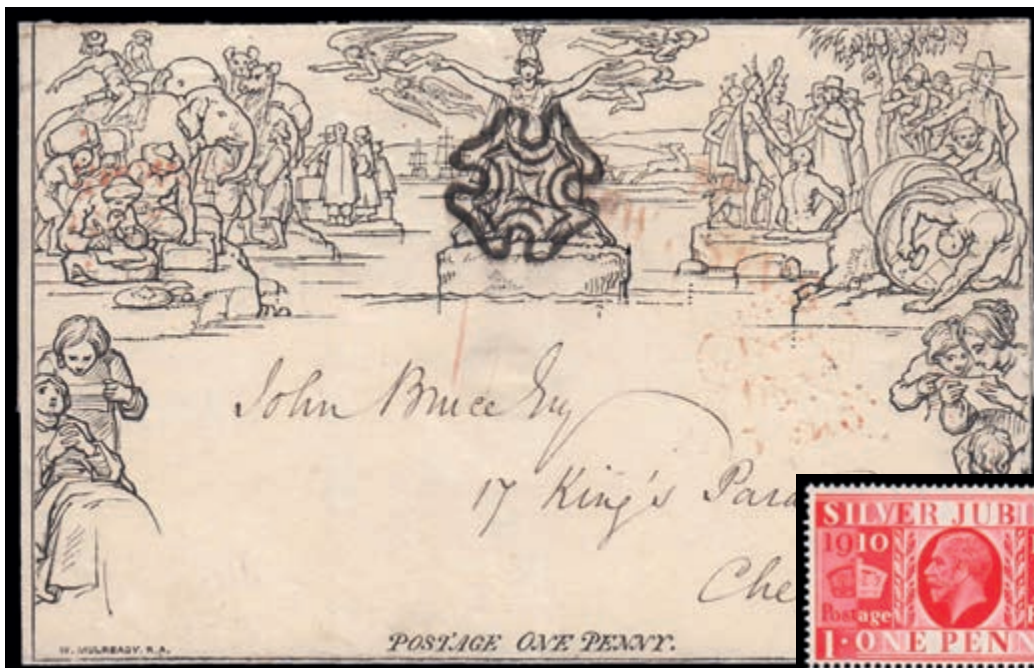 John Bruce Esq
17 King's Para
Che
W. MULREADY. R.A.
POSTAGE ONE PENNY.
SILVER JUB
1910
Postage
1·ONE PENN